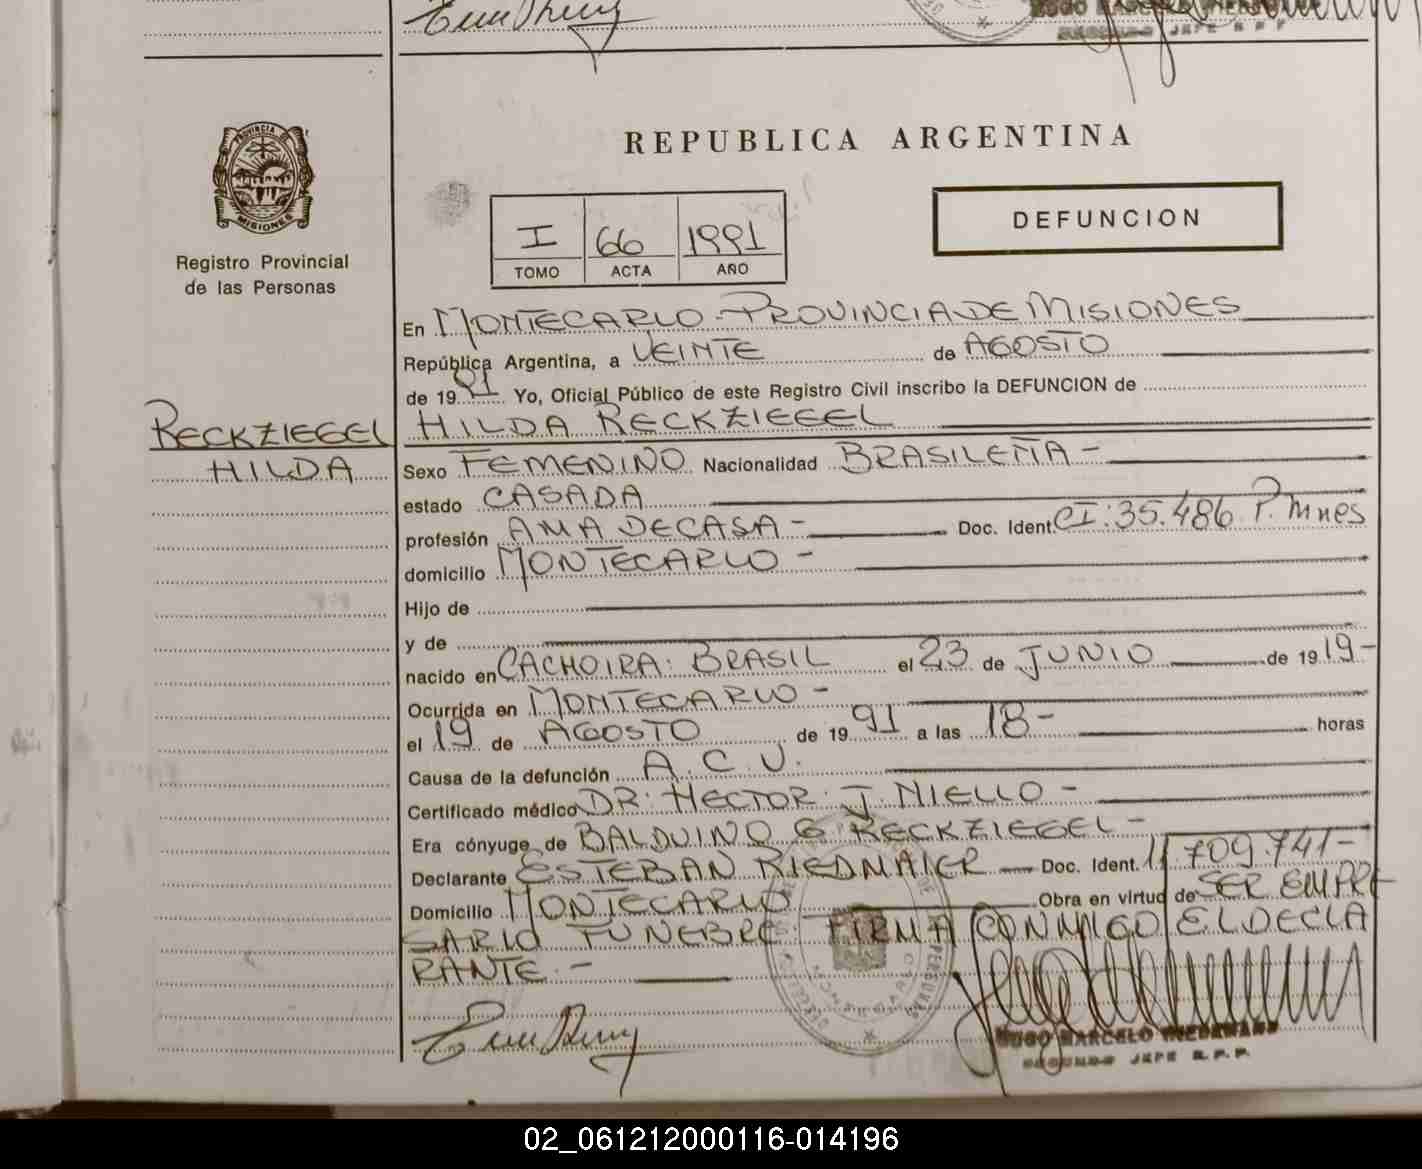 PROVINCIA DE
MISIONES
Registro Provincial
de las Personas
REPUBLICA ARGENTINA
I 66 1991
TOMO ACTA AÑO
DEFUNCION
En MONTECARLO - PROVINCIA DE MISIONES
República Argentina, a VEINTE de AGOSTO
de 19 91 Yo, Oficial Público de este Registro Civil inscribo la DEFUNCION de
RECKZIEGEL HILDA RECKZIEGEL
HILDA Sexo FEMENINO Nacionalidad BRASILEÑA -
estado CASADA
profesión AMA DE CASA - Doc. Ident. CI: 35.486 P. Mnes
domicilio MONTECARLO -
Hijo de
y de
nacido en CACHOIRA: BRASIL el 23 de JUNIO de 19 19 -
Ocurrida en MONTECARLO -
el 19 de AGOSTO de 19 91 a las 18 - horas
Causa de la defunción A.C.V.
Certificado médico DR: HECTOR: J. NIELLO -
Era cónyuge de BALDUINO G. RECKZIEGEL -
Declarante ESTEBAN RIEDMAIER Doc. Ident. 11.709.741 -
Domicilio MONTECARLO Obra en virtud de SER EMPRE
SARIO FUNEBRE: FIRMA CONMIGO EL DECLA
RANTE. -
HUGO MARCELO
SEGUNDO JEFE R.P.P.
02_061212000116-014196